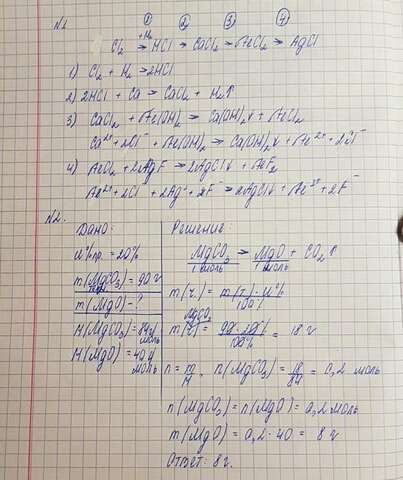 N1.
① ② ③ ④
Cl₂ +H₂→ HCl → CaCl₂ → FeCl₂ → AgCl
1) Cl₂ + H₂ → 2HCl
2) 2HCl + Ca → CaCl₂ + H₂↑
3) CaCl₂ + Fe(OH)₂ → Ca(OH)₂↓ + FeCl₂
Ca²⁺ + 2Cl⁻ + Fe(OH)₂ → Ca(OH)₂↓ + Fe²⁺ + 2Cl⁻
4) FeCl₂ + 2AgF → 2AgCl↓ + FeF₂
Fe²⁺ + 2Cl⁻ + 2Ag⁺ + 2F⁻ → 2AgCl↓ + Fe²⁺ + 2F⁻
N2.
Дано:
W%пр. = 20%
m(MgCO₃) = 90 г
m(MgO) - ?
M(MgCO₃) = 84 г/моль
M(MgO) = 40 г/моль
Решение:
MgCO₃ → MgO + CO₂↑
1 моль 1 моль
m(ч.) = m(т) · W% / 100%
MgCO₃
m(ч) = 90 · 20% / 100% = 18 г
n = m/M, n(MgCO₃) = 18/84 = 0,2 моль
n(MgCO₃) = n(MgO) = 0,2 моль
m(MgO) = 0,2 · 40 = 8 г
Ответ: 8 г.